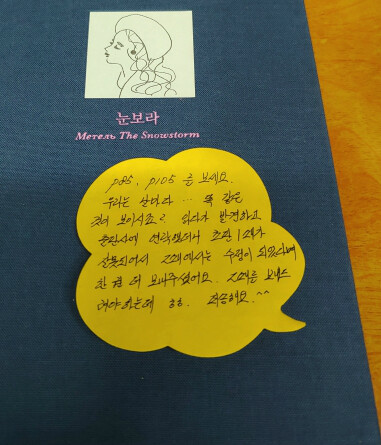 눈보라
Метель The Snowstorm
p85, p105 를 보세요.
우리는 살면서 ... 똑 같은
것이 보이시죠? 읽다가 발견하고
출판사에 연락했더니 초판 1쇄가
잘못되어서 2쇄에서는 수정이 되었다며
한 권 더 보내주셨어요. 2쇄를 보내드
려야 하는데 ㅎㅎ. 죄송해요.^^